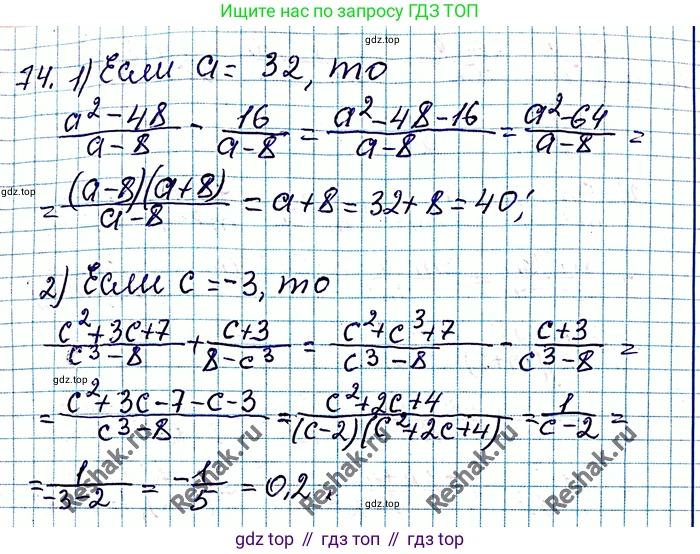 Ищите нас по запросу ГДЗ ТОП
gdz.top
74. 1) Если a = 32, то
(a² - 48)/(a - 8) - 16/(a - 8) = (a² - 48 - 16)/(a - 8) = (a² - 64)/(a - 8) =
gdz.top
= ((a - 8)(a + 8))/(a - 8) = a + 8 = 32 + 8 = 40;
gdz.top
2) Если c = -3, то
(c² + 3c + 7)/(c³ - 8) + (c + 3)/(8 - c³) = (c² + c³ + 7)/(c³ - 8) - (c + 3)/(c³ - 8) =
gdz.top
= (c² + 3c - 7 - c - 3)/(c³ - 8) = (c² + 2c + 4)/((c - 2)(c² + 2c + 4)) = 1/(c - 2) =
= 1/(-3 - 2) = -1/5 = 0,2
gdz.top
Reshak.ru
Reshak.ru
Reshak.ru
gdz top // гдз топ // gdz top